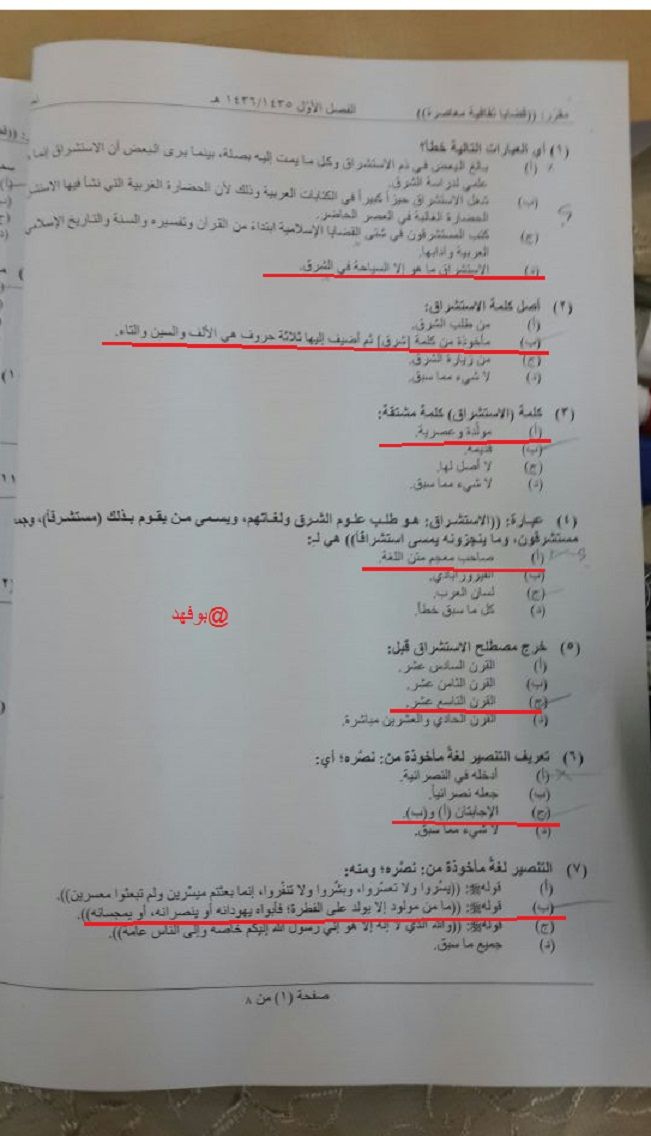 مقرر: ((قضايا ثقافية معاصرة)) الفصل الأول ١٤٣٥/١٤٣٦ هـ
(١) أي العبارات التالية خطأ؟
(أ) بالغ البعض في ذم الاستشراق وكل ما يمت إليه بصلة، بينما يرى البعض أن الاستشراق إنما
علمي لدراسة الشرق.
(ب) شغل الاستشراق حيزاً كبيراً في الكتابات العربية وذلك لأن الحضارة الغربية التي نشأ فيها الاستشر
الحضارة الغالبة في العصر الحاضر.
(ج) كتب المستشرقون في شتى القضايا الإسلامية ابتداءً من القرآن وتفسيره والسنة والتاريخ الإسلامي
العربية وآدابها.
(د) الاستشراق ما هو إلا السياحة في الشرق.
(٢) أصل كلمة الاستشراق:
(أ) من طلب الشرق.
(ب) مأخوذة من كلمة [شرق] ثم أضيف إليها ثلاثة حروف هي الألف والسين والتاء.
(ج) من زيارة الشرق.
(د) لا شيء مما سبق.
(٣) كلمة (الاستشراق) كلمة مشتقة:
(أ) مولدة وعصرية.
(ب) قديمة.
(ج) لا أصل لها.
(د) لا شيء مما سبق.
(٤) عبارة: ((الاستشراق: هو طلب علوم الشرق ولغاتهم، ويسمى من يقوم بذلك (مستشرقاً)، وجمعه
مستشرقون، وما ينجزونه يمسى استشراقاً)) هي لـ:
(أ) صاحب معجم متن اللغة.
(ب) الفيروزآبادي.
(ج) لسان العرب.
(د) كل ما سبق خطأ.
@بوفهد
(٥) خرج مصطلح الاستشراق قبل:
(أ) القرن السادس عشر.
(ب) القرن الثامن عشر.
(ج) القرن التاسع عشر.
(د) القرن الحادي والعشرين مباشرة.
(٦) تعريف التنصير لغةً مأخوذة من: نصّره؛ أي:
(أ) أدخله في النصرانية.
(ب) جعله نصرانياً.
(ج) الإجابتان (أ) و(ب).
(د) لا شيء مما سبق.
(٧) التنصير لغةً مأخوذة من: نصّره؛ ومنه:
(أ) قوله ﷺ: ((يسّروا ولا تعسّروا، وبشّروا ولا تنفّروا، إنما بعثتم ميسّرين ولم تبعثوا معسرين)).
(ب) قوله ﷺ: ((ما من مولود إلا يولد على الفطرة؛ فأبواه يهودانه أو ينصرانه، أو يمجسانه)).
(ج) قوله ﷺ: ((والله الذي لا إله إلا هو إني رسول الله إليكم خاصة وإلى الناس عامة)).
(د) جميع ما سبق.
صفحة (١) من ٨